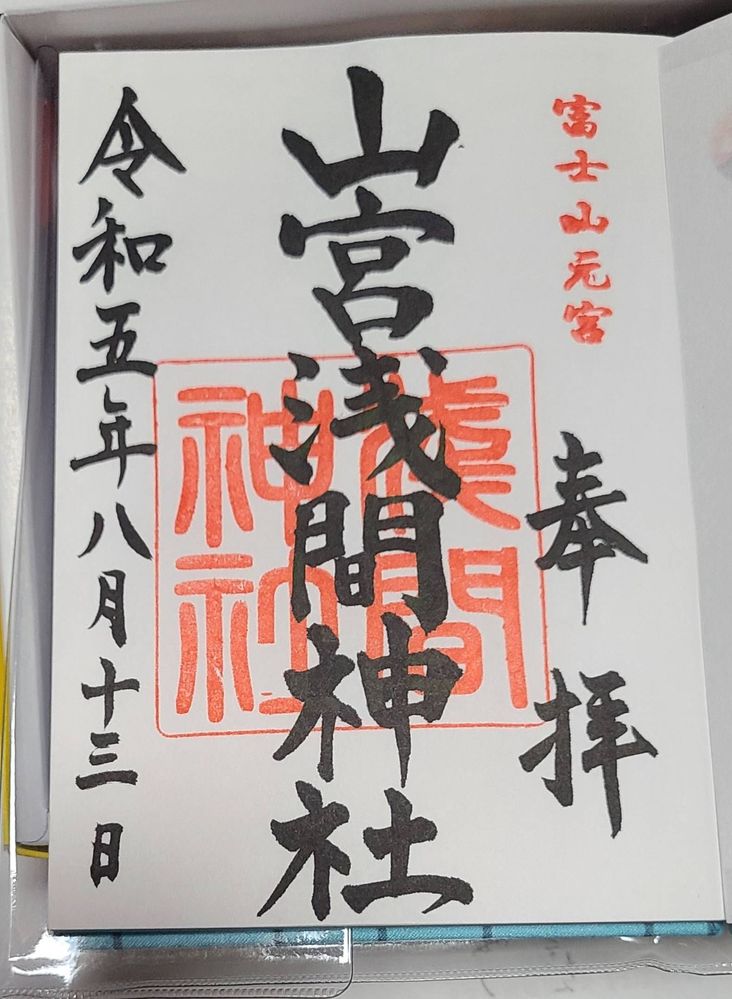 富士山元宮
奉拝
山宮浅間神社
淺間
神社
令和五年八月十三日